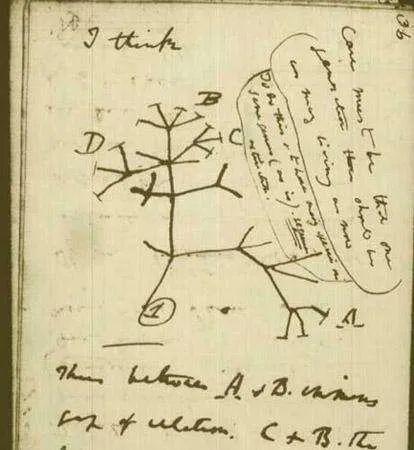 36
I think
Case must be that one
generation then should be
as many living as now
To do this & to have many species in
same genus (as is) requires
extinction.
B
D
C
A
1
Thus between A & B. immense
gap of relation. C & B. the